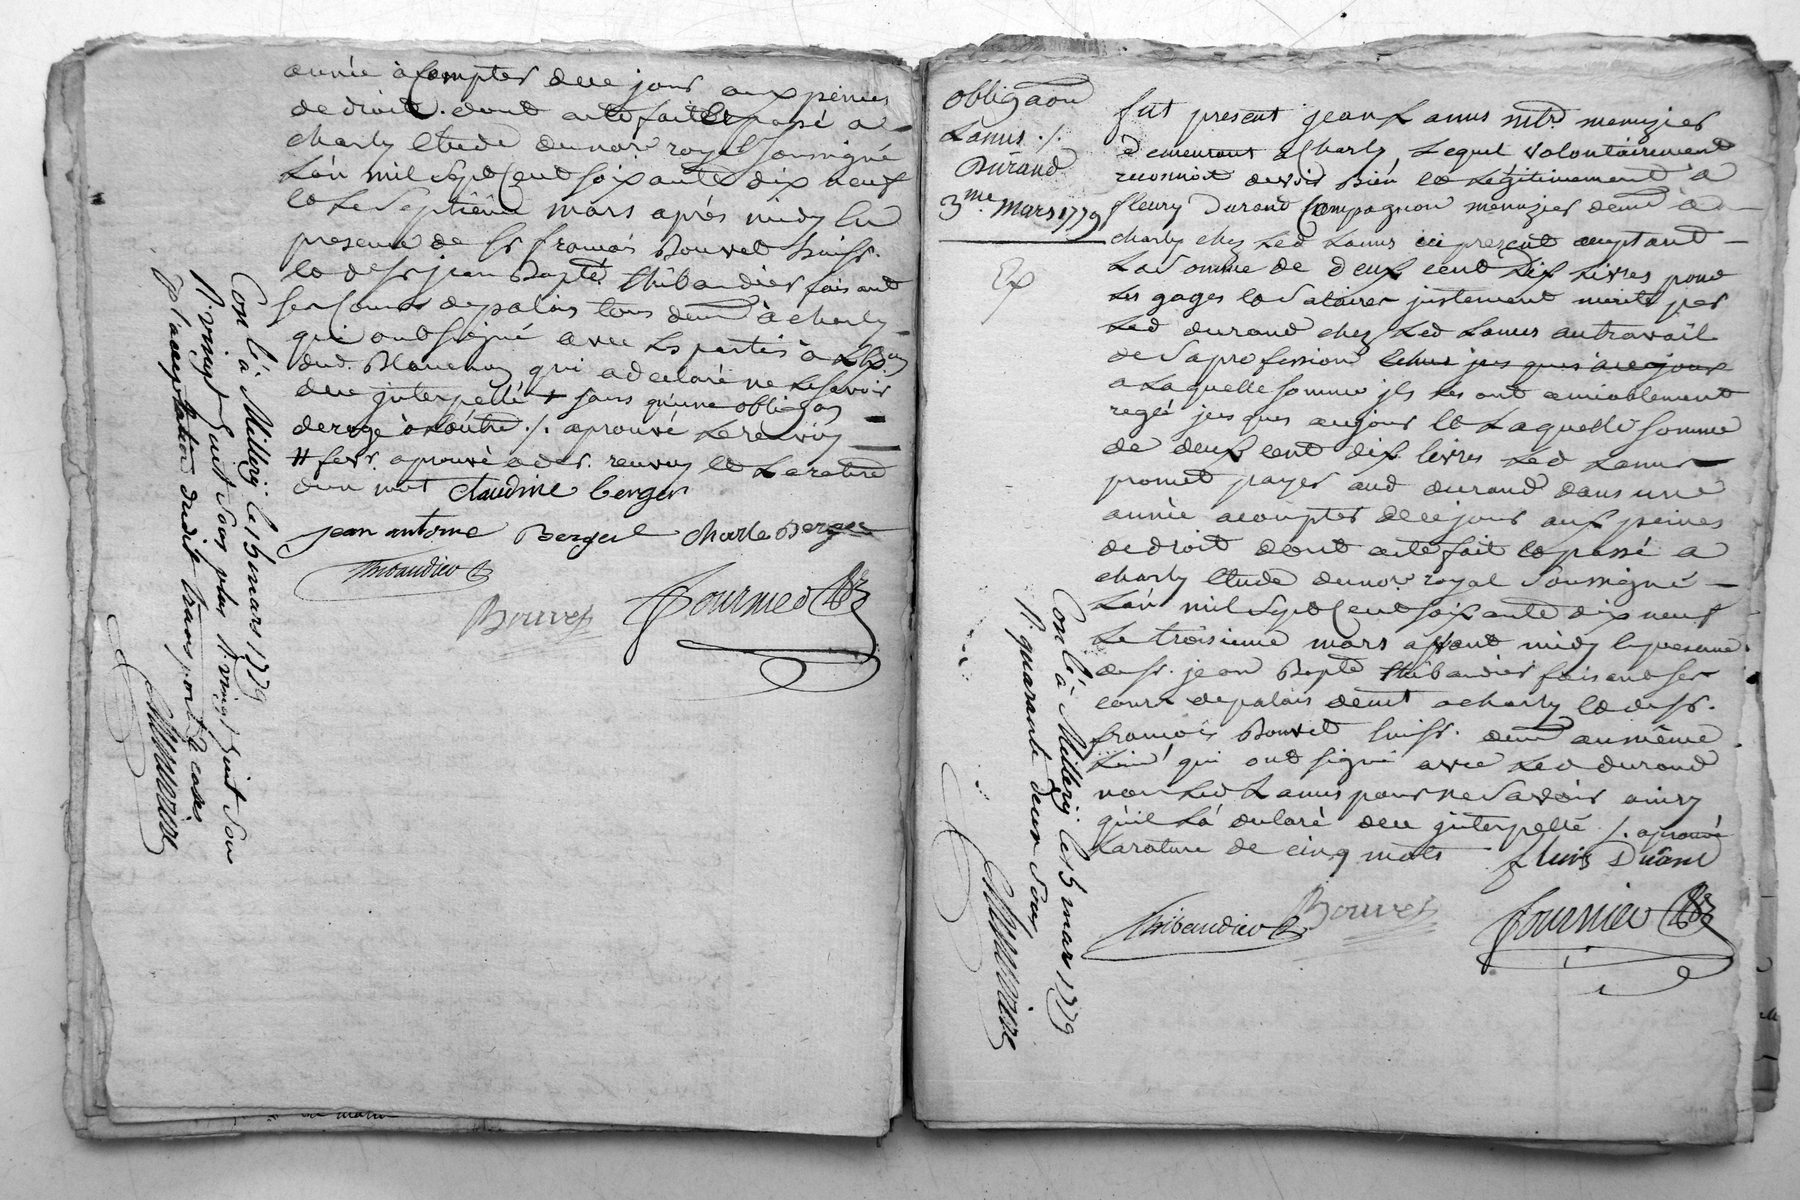 année à Compter de ce jour aux peines
de droit. dont acte fait et passé a
charly Etude du no.re royal soussigné
L'an mil sept Cent soixante dix neuf
et Le Septième mars après midy En
presence de Sr françois Bouvet huiss.
et de Sr jean Bapte Thibaudier faisant
ses Cours de palais tous demt à charly
qui ont signé avec Les parties à
dud. qui a declaré ne Le Savoir
de ce interpellé + sans qu'une obligaon
deroge à L'autre ./. aprouvé Le renvoy
aprouvé renvoy et La rature
d'un mot Claudine berger
jean antoine Berger Charle Berger
Thibaudier
Bouvet fournier
Con.lé à Millery le 5 mars 1779
R. vingt huit sous plus R. vingt huit sous
p. l'acceptation dudit transport
obligaon
Lanus ./.
Durand
3me Mars 1779
Ex
fut present jean Lanus mtre menuzier
demeurant a Charly, Lequel volontairement
reconnoit devoir bien et Légitimement à
fleury Durand Compagnon menuzier demt à
charly chez Led Lanus ici present acceptant
La Somme de deux cent dix Livres pour
Les gages et Salaires justement merités par
Led durand chez Led Lanus au travail
de Sa profession echus jus ques à ce jour
a Laquelle Somme ils Les ont amiablement
reglé jus ques au jour et Laquelle Somme
de deux cent dix livres Led Lanus
promet payer aud durand dans une
année a compter de ce jour aux peines
de droit dont acte fait et passé a
charly Etude du no.re royal Soussigné
L'an mil Sept Cent soixante dix neuf
Le troisieme mars avant midy En presence
de Sr. jean Bapte Thibaudier faisant Ses
cours de palais demt a charly et de Sr.
françois Bouvet huiss. demt au même
Lieu qui ont signé avec Led durand
non Led Lanus pour ne Savoir ainsy
qu'il L'a declaré de ce interpellé ./. aprouvé
La rature de cinq mots
Thibaudier Bouvet fournier
Con.lé à Millery le 5 mars 1779
R. quarante deux sous